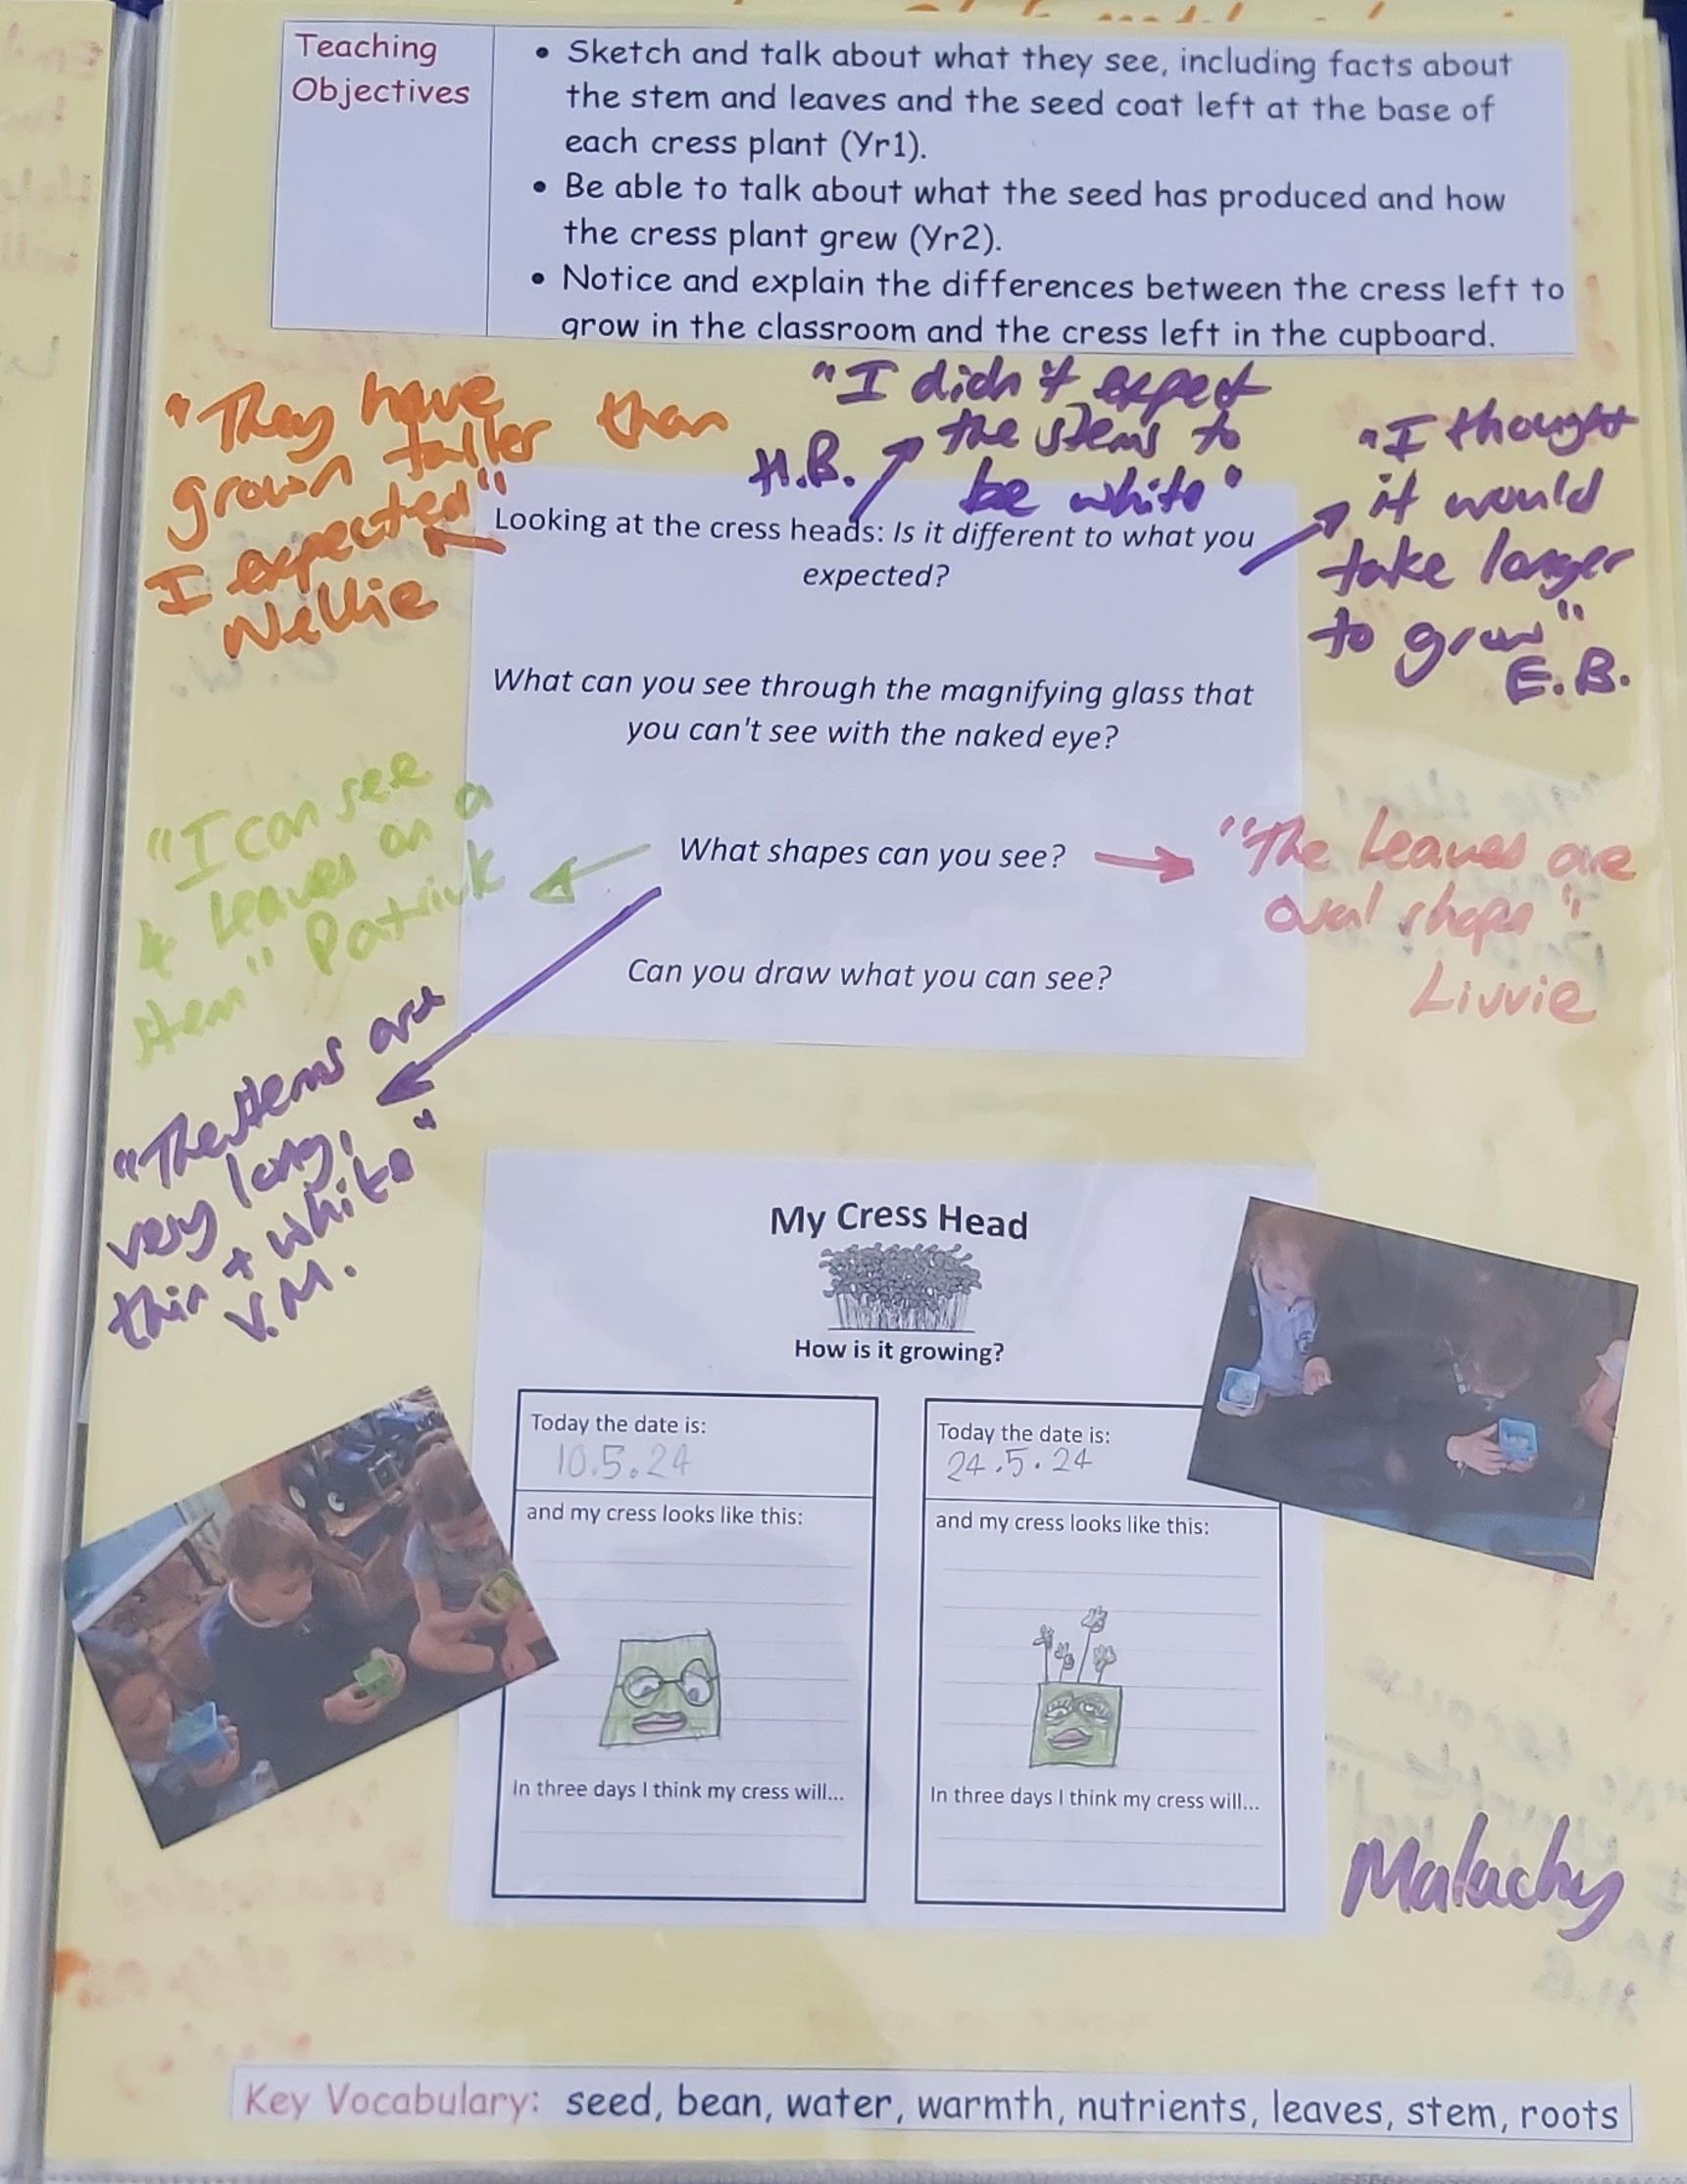 Teaching
Objectives
• Sketch and talk about what they see, including facts about
the stem and leaves and the seed coat left at the base of
each cress plant (Yr1).
• Be able to talk about what the seed has produced and how
the cress plant grew (Yr2).
• Notice and explain the differences between the cress left to
grow in the classroom and the cress left in the cupboard.
"They have
grown taller than
I expected"
Nellie
"I didn't expect
the stems to
be white"
H.B.
"I thought
it would
take longer
to grow"
E.B.
Looking at the cress heads: Is it different to what you
expected?
What can you see through the magnifying glass that
you can't see with the naked eye?
"I can see
4 leaves on a
stem" Patrick
What shapes can you see?
"The leaves are
oval shape"
Livvie
Can you draw what you can see?
"The stems are
very long,
thin + white"
V.M.
My Cress Head
How is it growing?
Today the date is:
10.5.24
and my cress looks like this:
In three days I think my cress will...
Today the date is:
24.5.24
and my cress looks like this:
In three days I think my cress will...
Malachy
Key Vocabulary: seed, bean, water, warmth, nutrients, leaves, stem, roots